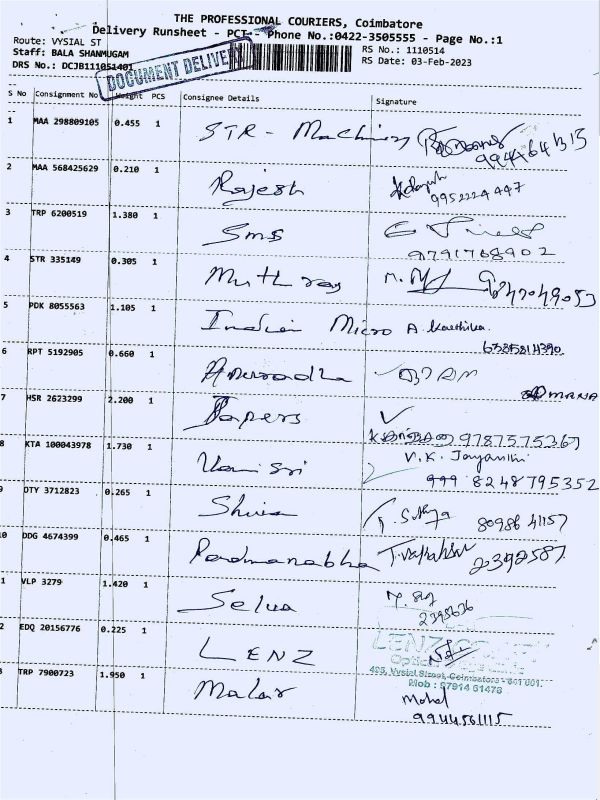 THE PROFESSIONAL COURIERS, Coimbatore
Delivery Runsheet - PCT - Phone No.:0422-3505555 - Page No.:1
Route: VYSIAL ST
RS No.: 1110514
Staff: BALA SHANMUGAM
RS Date: 03-Feb-2023
DRS No.: DCJB111051401
DOCUMENT DELIVERY
S No Consignment No PCS Consignee Details Signature
1 MAA 298809105 0.455 1 STR - Machinery
2 MAA 568425629 0.210 1 Rajesh
9952224447
3 TRP 6200519 1.380 1 Sms
9791768902
4 STR 335149 0.305 1 9847049053
5 PDK 8055563 1.105 1 Indian Micro A. Karthika
6 RPT 5192905 0.660 1 Anuradha
7 HSR 2623299 2.200 1 Papers
9787575367
8 KTA 100043978 1.730 1 Vamisri V.K. Jayanthi
8248795352
9 OTY 3712823 0.265 1 Shiva Surya 80986 41157
10 DDG 4674399 0.465 1 Padmanabha 2392587
1 VLP 3279 1.420 1 Selva
2395636
2 EDQ 20156776 0.225 1 LENZ
LENZ
Optic
Vysial Street, Coimbatore - 641 001.
Mob : 97914 61478
3 TRP 7900723 1.950 1 Malar Mohel
9944561115